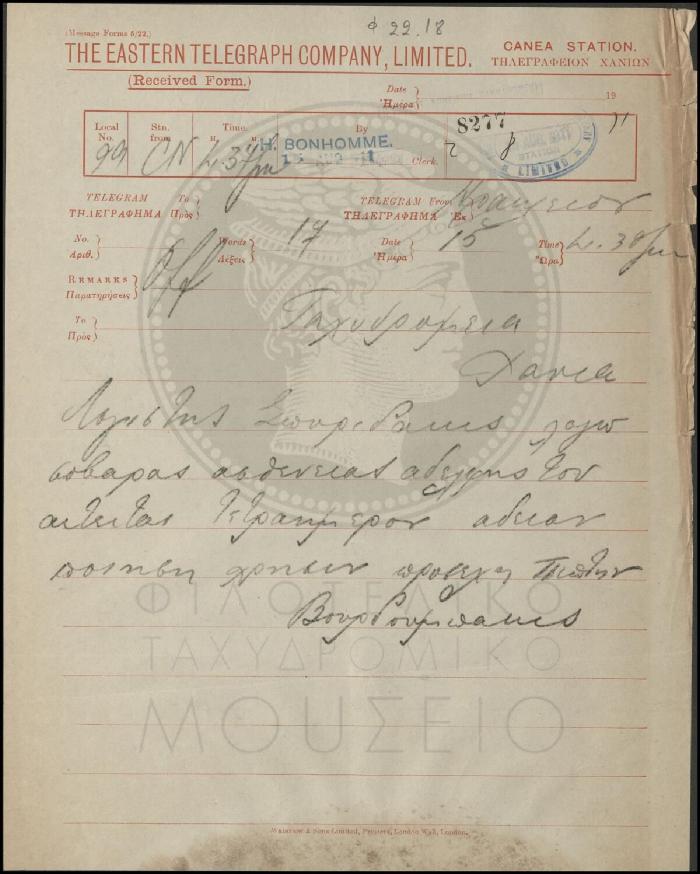 Φ 22.18
(Message Forms 5/22.)
THE EASTERN TELEGRAPH COMPANY, LIMITED.
CANEA STATION.
ΤΗΛΕΓΡΑΦΕΙΟΝ ΧΑΝΙΩΝ
(Received Form.)
Date
Ἡμέρα
19
Local No.
Stn. from
Time.
By
Clerk.
99 CN 4.37 pm
H. BONHOMME.
8277
STATION
LIMITED
TELEGRAM To
ΤΗΛΕΓΡΑΦΗΜΑ Πρὸς
TELEGRAM From
ΤΗΛΕΓΡΑΦΗΜΑ Ἐκ
No.
Ἀριθ.
Words
Λέξεις
17
Date
Ἡμέρα
15
Time
Ὥρα
4.30 pm
REMARKS
Παρατηρήσεις
Off
To
Πρὸς
Ταχυδρομεια
Χανια
Λογιστης λογω
σοβαρας ασθενειας αδελφης του
αιτειται τετραημερον αδειαν
ποιηση χρησιν
Βουρδουμπακις
ΦΙΛΟΤΕΛΙΚΟ
ΤΑΧΥΔΡΟΜΙΚΟ
ΜΟΥΣΕΙΟ
WATERLOW & SONS LIMITED, Printers, London Wall, London.